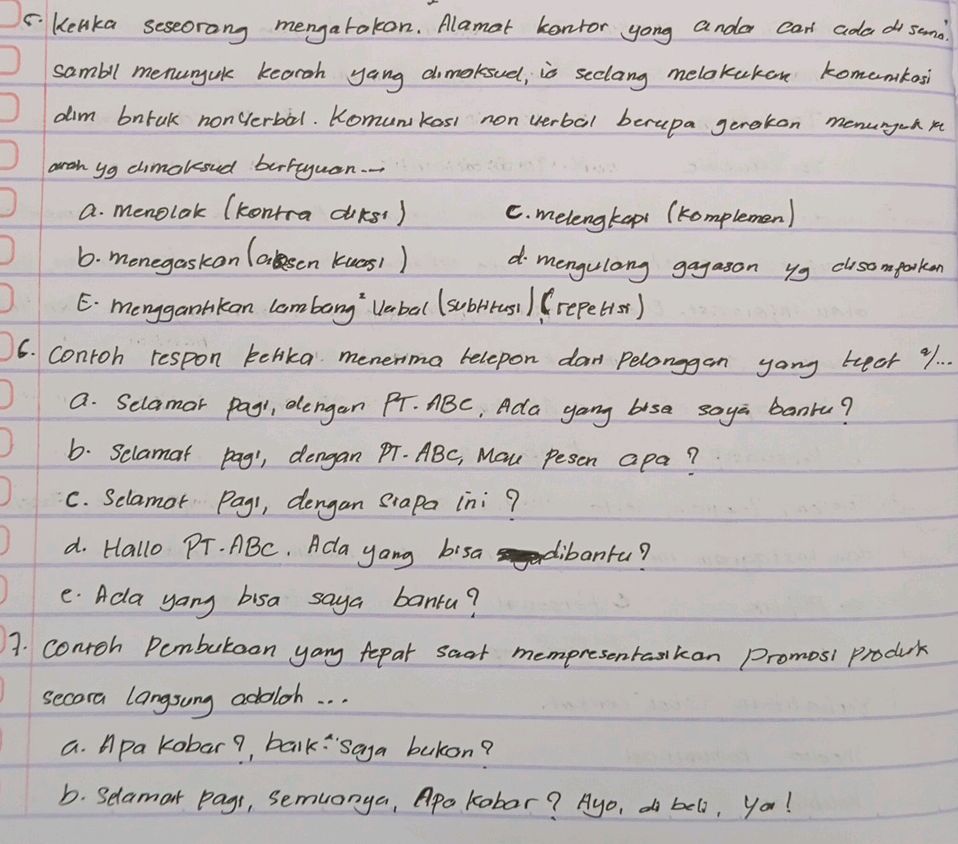 5. Ketika seseorang mengatakan. Alamat kantor yang anda cari ada di sana.'
sambil menunjuk kearah yang dimaksud, ia sedang melakukan komunikasi
dlm bntuk nonverbal. Komunikasi non verbal berupa gerakan menunjuk ke
arah yg dimaksud bertujuan...
a. menolak (kontra diksi) c. melengkapi (komplemen)
b. menegaskan (aksen kuasi) d. mengulang gagasan yg disampaikan
E. menggantikan lambang² verbal (subtitusi) (repetisi)
6. Contoh respon ketika menerima telepon dari pelanggan yang tepat ...
a. Selamat pagi, dengan PT. ABC, Ada yang bisa saya bantu?
b. Selamat pagi, dengan PT. ABC, Mau Pesen apa?
c. Selamat Pagi, dengan siapa ini?
d. Hallo PT. ABC. Ada yang bisa dibantu?
e. Ada yang bisa saya bantu?
7. Contoh Pembukaan yang tepat saat mempresentasikan Promosi Produk
secara langsung adalah ...
a. Apa kabar?, baik² saja bukan?
b. Selamat pagi, semuanya, Apa kabar? Ayo, di beli, ya!